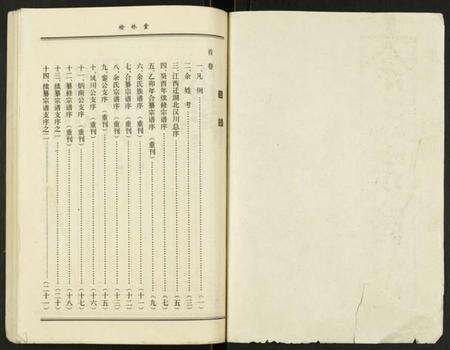 首卷
目 录
一、凡 例 （一）
二、余 姓 考 （三）
三、江西迁湖北汉川总序 （五）
四、癸酉年续修宗谱序 （七）
五、乙卯年合纂宗谱序（重刊） （九）
六、余氏族谱序（重刊） （十一）
七、合纂宗谱序（重刊） （十二）
八、余氏宗谱序（重刊） （十三）
九、公支序（重刊） （十五）
十、凤川公支序（重刊） （十六）
十一、炳南公支序（重刊） （十七）
十二、纂修宗谱序（重刊） （十八）
十三、续纂宗谱支序之一 （二十）
十四、续纂宗谱支序之二 （二十一）